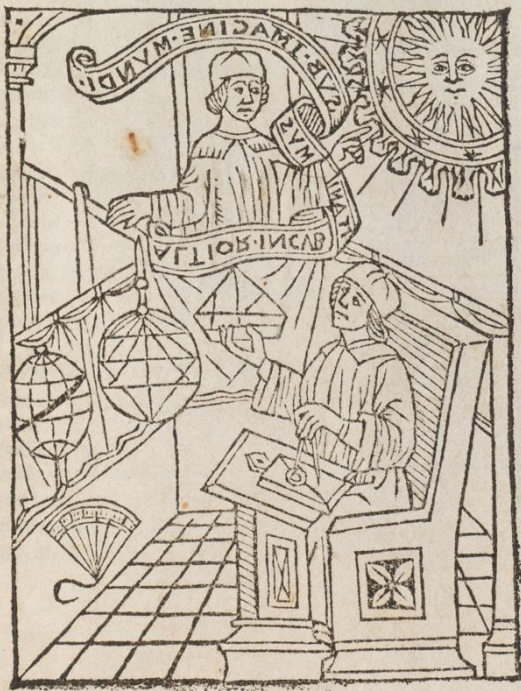 ALTIOR·INCVB
MVS
SVB·IMAGINE·MVNDI·